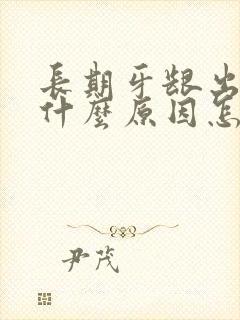 長期牙龈出
什麼原因怎
尹茂